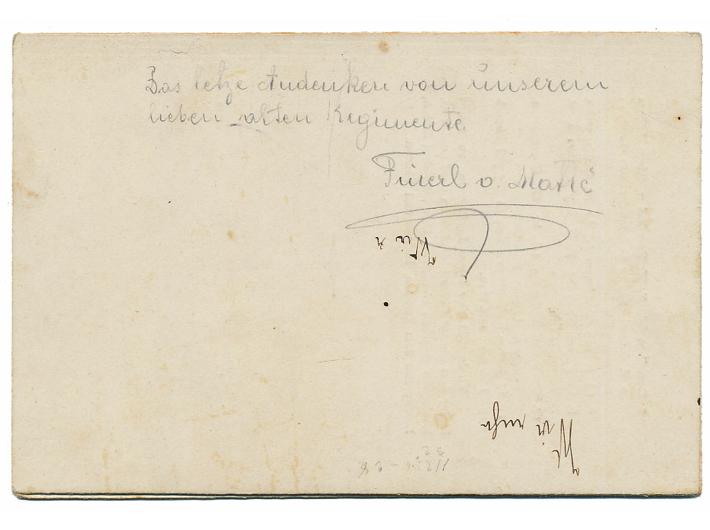 Das letze Andenken von unserem
lieben alten Regimente.
v. Matić
Wir